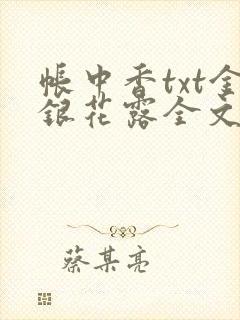 帳中香txt金
銀花露全文
蔡某亮